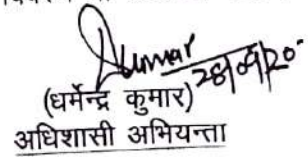 Kumar
28/09/20
(धर्मेन्द्र कुमार)
अधिशासी अभियन्ता